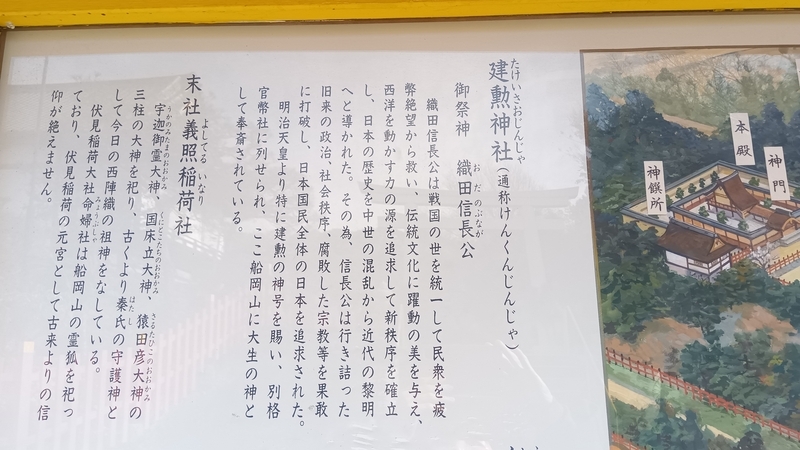 たけいさおじんじゃ
建勲神社(通称けんくんじんじゃ)
御祭神 織田信長公
おだのぶなが
織田信長公は戦国の世を統一して民衆を疲
弊絶望から救い、伝統文化に躍動の美を与え、
西洋を動かす力の源を追求して新秩序を確立
し、日本の歴史を中世の混乱から近代の黎明
へと導かれた。その為、信長公は行き詰った
旧来の政治、社会秩序、腐敗した宗教等を果敢
に打破し、日本国民全体の日本を追求された。
明治天皇より特に建勲の神号を賜い、別格
官幣社に列せられ、ここ船岡山に大生の神と
して奉斎されている。
よしてるいなり
末社義照稲荷社
うかのみたまのおおかみ くにとこたちのおおかみ さるたひこのおおかみ
宇迦御霊大神、国床立大神、猿田彦大神の
三柱の大神を祀り、古くより秦氏の守護神と
はたし
して今日の西陣織の祖神をなしている。
伏見稲荷大社命婦社は船岡山の霊狐を祀っ
みょうぶしゃ
ており、伏見稲荷の元宮として古来よりの信
仰が絶えません。
本殿
神門
神饌所